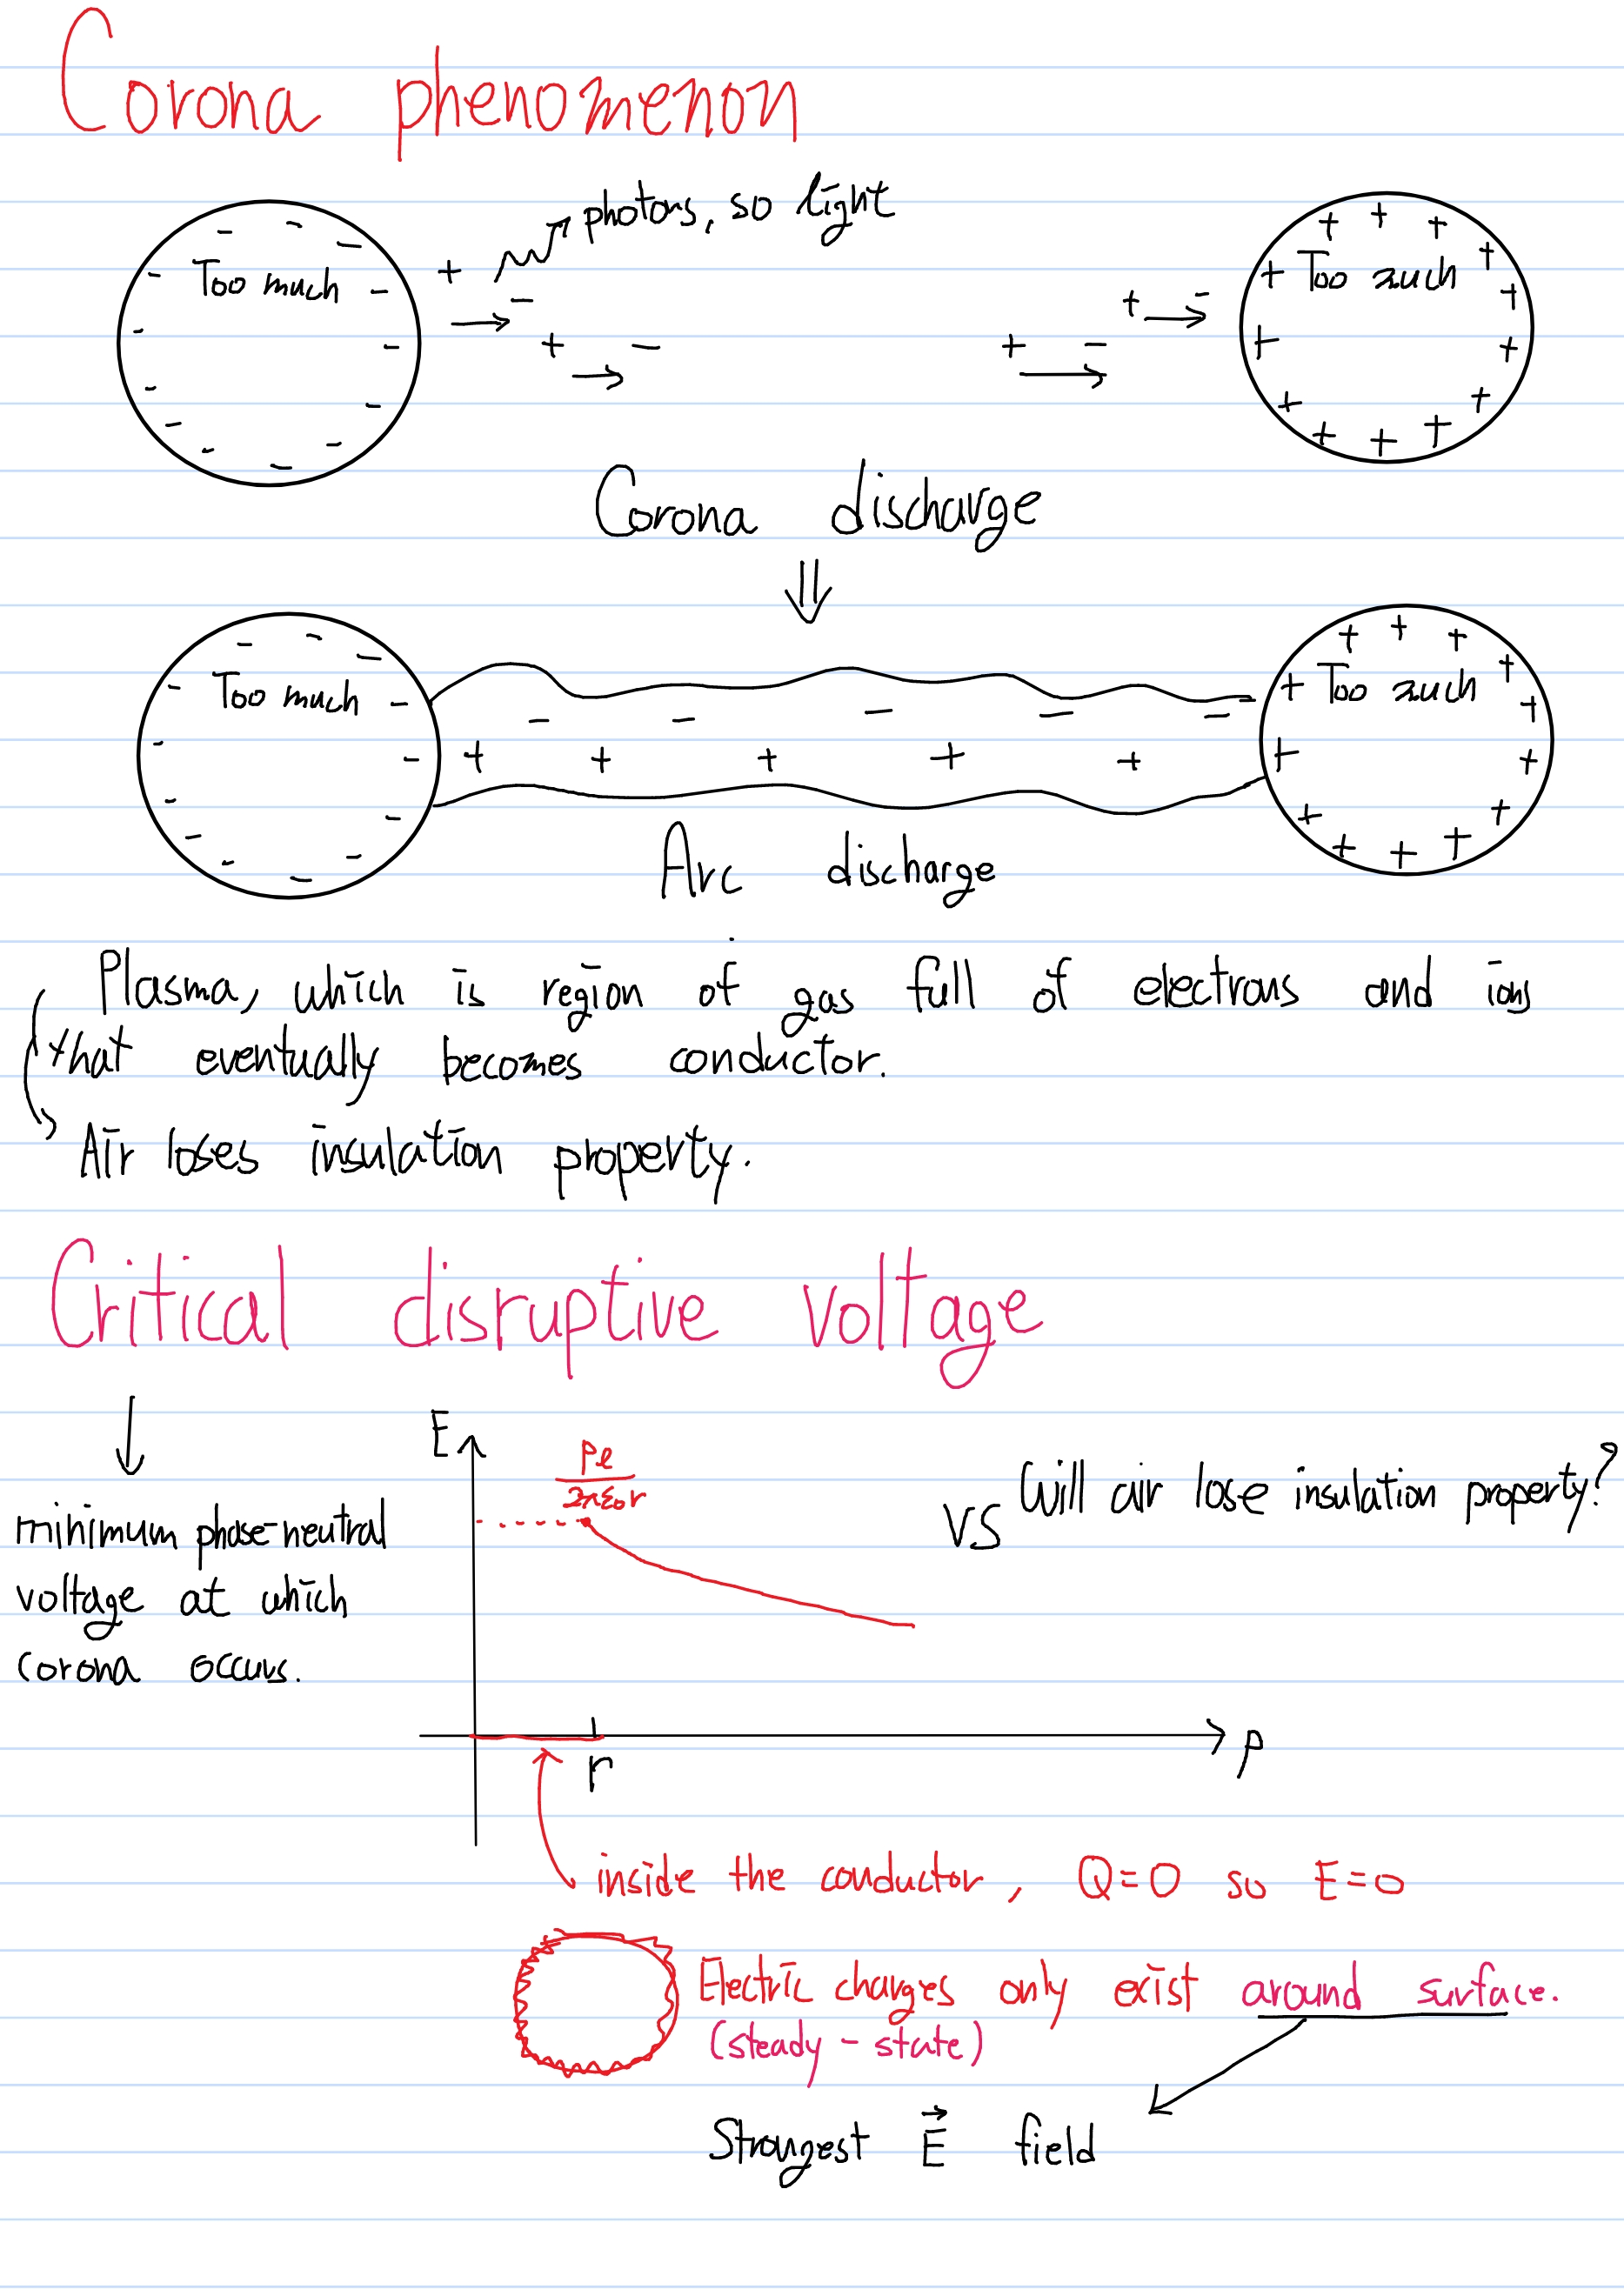 Corona phenomenon
photons, so light
Too much
Too much
Corona discharge
Too much
Too much
Arc discharge
Plasma, which is region of gas full of electrons and ions
that eventually becomes conductor.
Air loses insulation property.
Critical disruptive voltage
minimum phase-neutral
voltage at which
corona occurs.
E
ρℓ
2πε₀r
vs Will air lose insulation property?
r
ρ
inside the conductor, Q=0 so E=0
Electric charges only exist around surface.
(steady-state)
Strongest E⃗ field